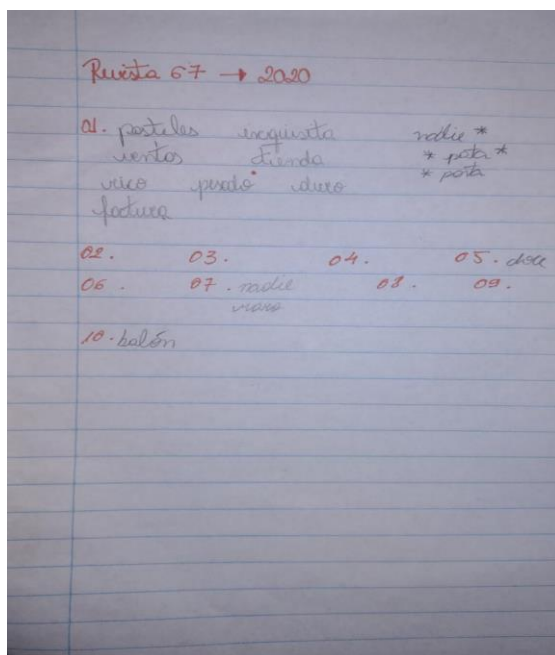 Revista 67 → 2020
01. pasteles inxquisita nadie *
vientos tienda * pata *
rico pesado duro * posta
factura
02. 03. 04. 05. doce
06. 07. nadie 08. 09.
raro
10. balón